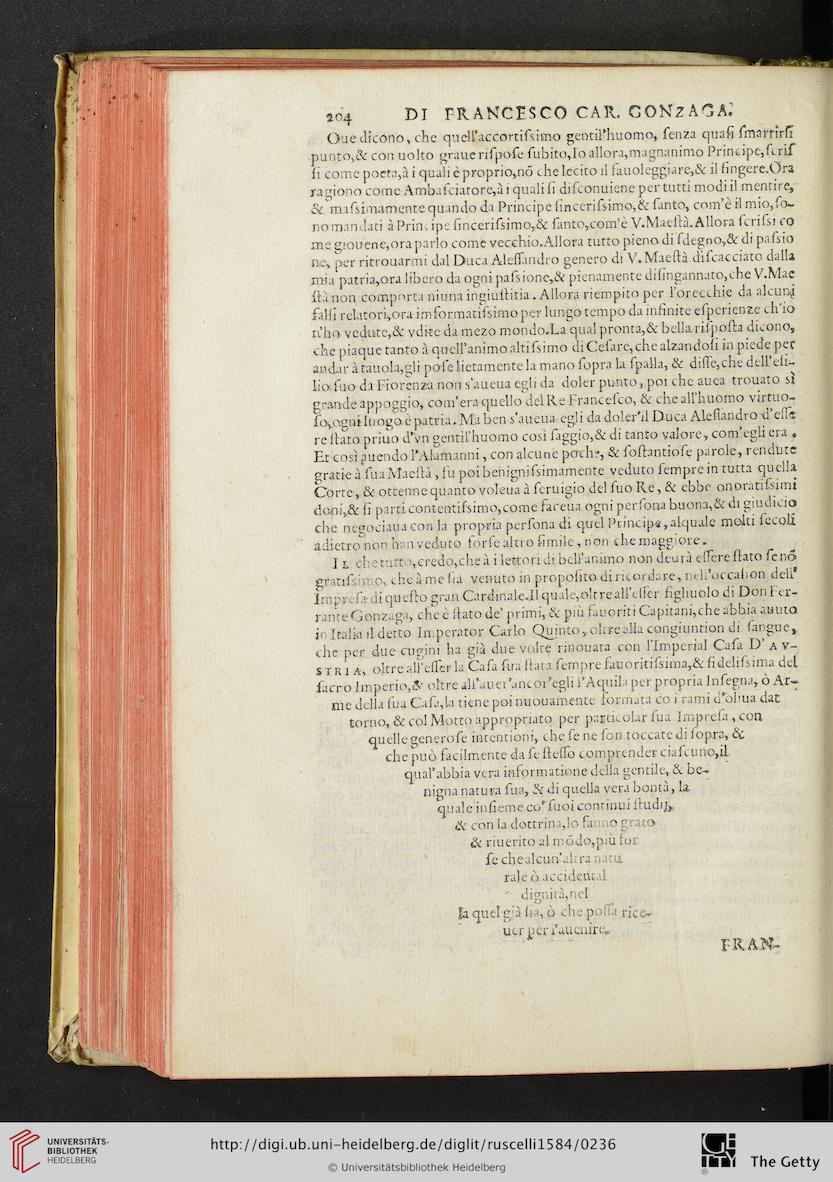 204 DI FRANCESCO CAR. GONZAGA.
Oue dicono, che quell'accortiſsimo gentil'huomo, ſenza quaſi ſmarrirſi
punto,& con uolto graue riſpoſe ſubito,Io allora,magnanimo Principe,ſcriſ
ſi come poeta,à i quali è proprio,nõ che lecito il fauoleggiare,& il fingere.Ora
ragiono come Ambaſciatore,à i quali ſi diſconuiene per tutti modi il mentire,
& maſsimamente quando da Principe ſinceriſsimo,& ſanto, com'è il mio, ſo-
no mandati à Principe ſinceriſsimo,& ſanto,com'è V.Maeſtà.Allora ſcriſsi co
me giouene,ora parlo come vecchio.Allora tutto pieno di ſdegno,& di paſsio
ne, per ritrouarmi dal Duca Aleſſandro genero di V. Maeſtà diſcacciato dalla
mia patria,ora libero da ogni paſsione,& pienamente diſingannato,che V.Mae
ſtà non comporta niuna ingiuſtitia. Allora riempito per l'orecchie da alcuni
falſi relatori,ora imformatiſsimo per lungo tempo da infinite eſperienze ch'io
n'ho vedute,& vdite da mezo mondo.La qual pronta,& bella riſpoſta dicono,
che piaque tanto à quell'animo altiſsimo di Ceſare, che alzandoſi in piede per
andar à tauola,gli poſe lietamente la mano ſopra la ſpalla, & diſſe,che dell'eſi-
lio ſuo da Fiorenza non s'aueua egli da doler punto, poi che auea trouato sì
grande appoggio, com'era quello del Re Franceſco, & che all'huomo virtuo-
ſo,ogni luogo è patria. Ma ben s'aueua egli da doler'il Duca Aleſſandro d'eſſe
re ſtato priuo d'vn gentil'huomo così ſaggio,& di tanto valore, com'egli era.
Et così auendo l'Alamanni, con alcune poche, & ſoſtantioſe parole, rendute
gratie à ſua Maeſtà, fu poi benigniſsimamente veduto ſempre in tutta quella
Corte, & ottenne quanto voleua à ſeruigio del ſuo Re, & ebbe onoratiſsimi
doni,& ſi partì contentiſsimo,come faceua ogni perſona buona,& di giudicio
che negociaua con la propria perſona di quel Principe, alquale molti ſecoli
adietro non han veduto forſe altro ſimile, non che maggiore.
IL che tutto,credo,che à i lettori di bell'animo non deurà eſſere ſtato ſe nõ
gratiſsimo, che à me ſia venuto in propoſito di ricordare, nell'occaſion dell'
Impreſa di queſto gran Cardinale.Il quale,oltre all'eſſer figliuolo di Don Fer-
rante Gonzaga, che è ſtato de' primi, & più fauoriti Capitani,che abbia auuto
in Italia il detto Imperator Carlo Quinto, oltre alla congiuntion di ſangue,
che per due cugini ha già due volte rinouata con l'Imperial Caſa D'AV-
STRIA, oltre all'eſſer la Caſa ſua ſtata ſempre fauoritiſsima,& fideliſsima del
ſacro Imperio,& oltre all'auer'ancor'egli l'Aquila per propria Inſegna, ò Ar-
me della ſua Caſa,la tiene poi nuouamente formata co i rami d'oliua dat
torno, & col Motto appropriato per particolar ſua Impreſa, con
quelle generoſe intentioni, che ſe ne ſon toccate di ſopra, &
che può facilmente da ſe ſteſſo comprender ciaſcuno,il
qual'abbia vera informatione della gentile, & be-
nigna natura ſua, & di quella vera bontà, la
quale inſieme co' ſuoi continui ſtudij,
& con la dottrina,lo fanno grato
& riuerito al mõdo,più for
ſe che alcun'altra natu
rale ò accidental
dignità,nel
la quel già ſia, ò che poſſa rice-
uer per l'auenire.
FRAN-
UNIVERSITÄTS-
BIBLIOTHEK
HEIDELBERG
http://digi.ub.uni-heidelberg.de/diglit/ruscelli1584/0236
© Universitätsbibliothek Heidelberg
The Getty